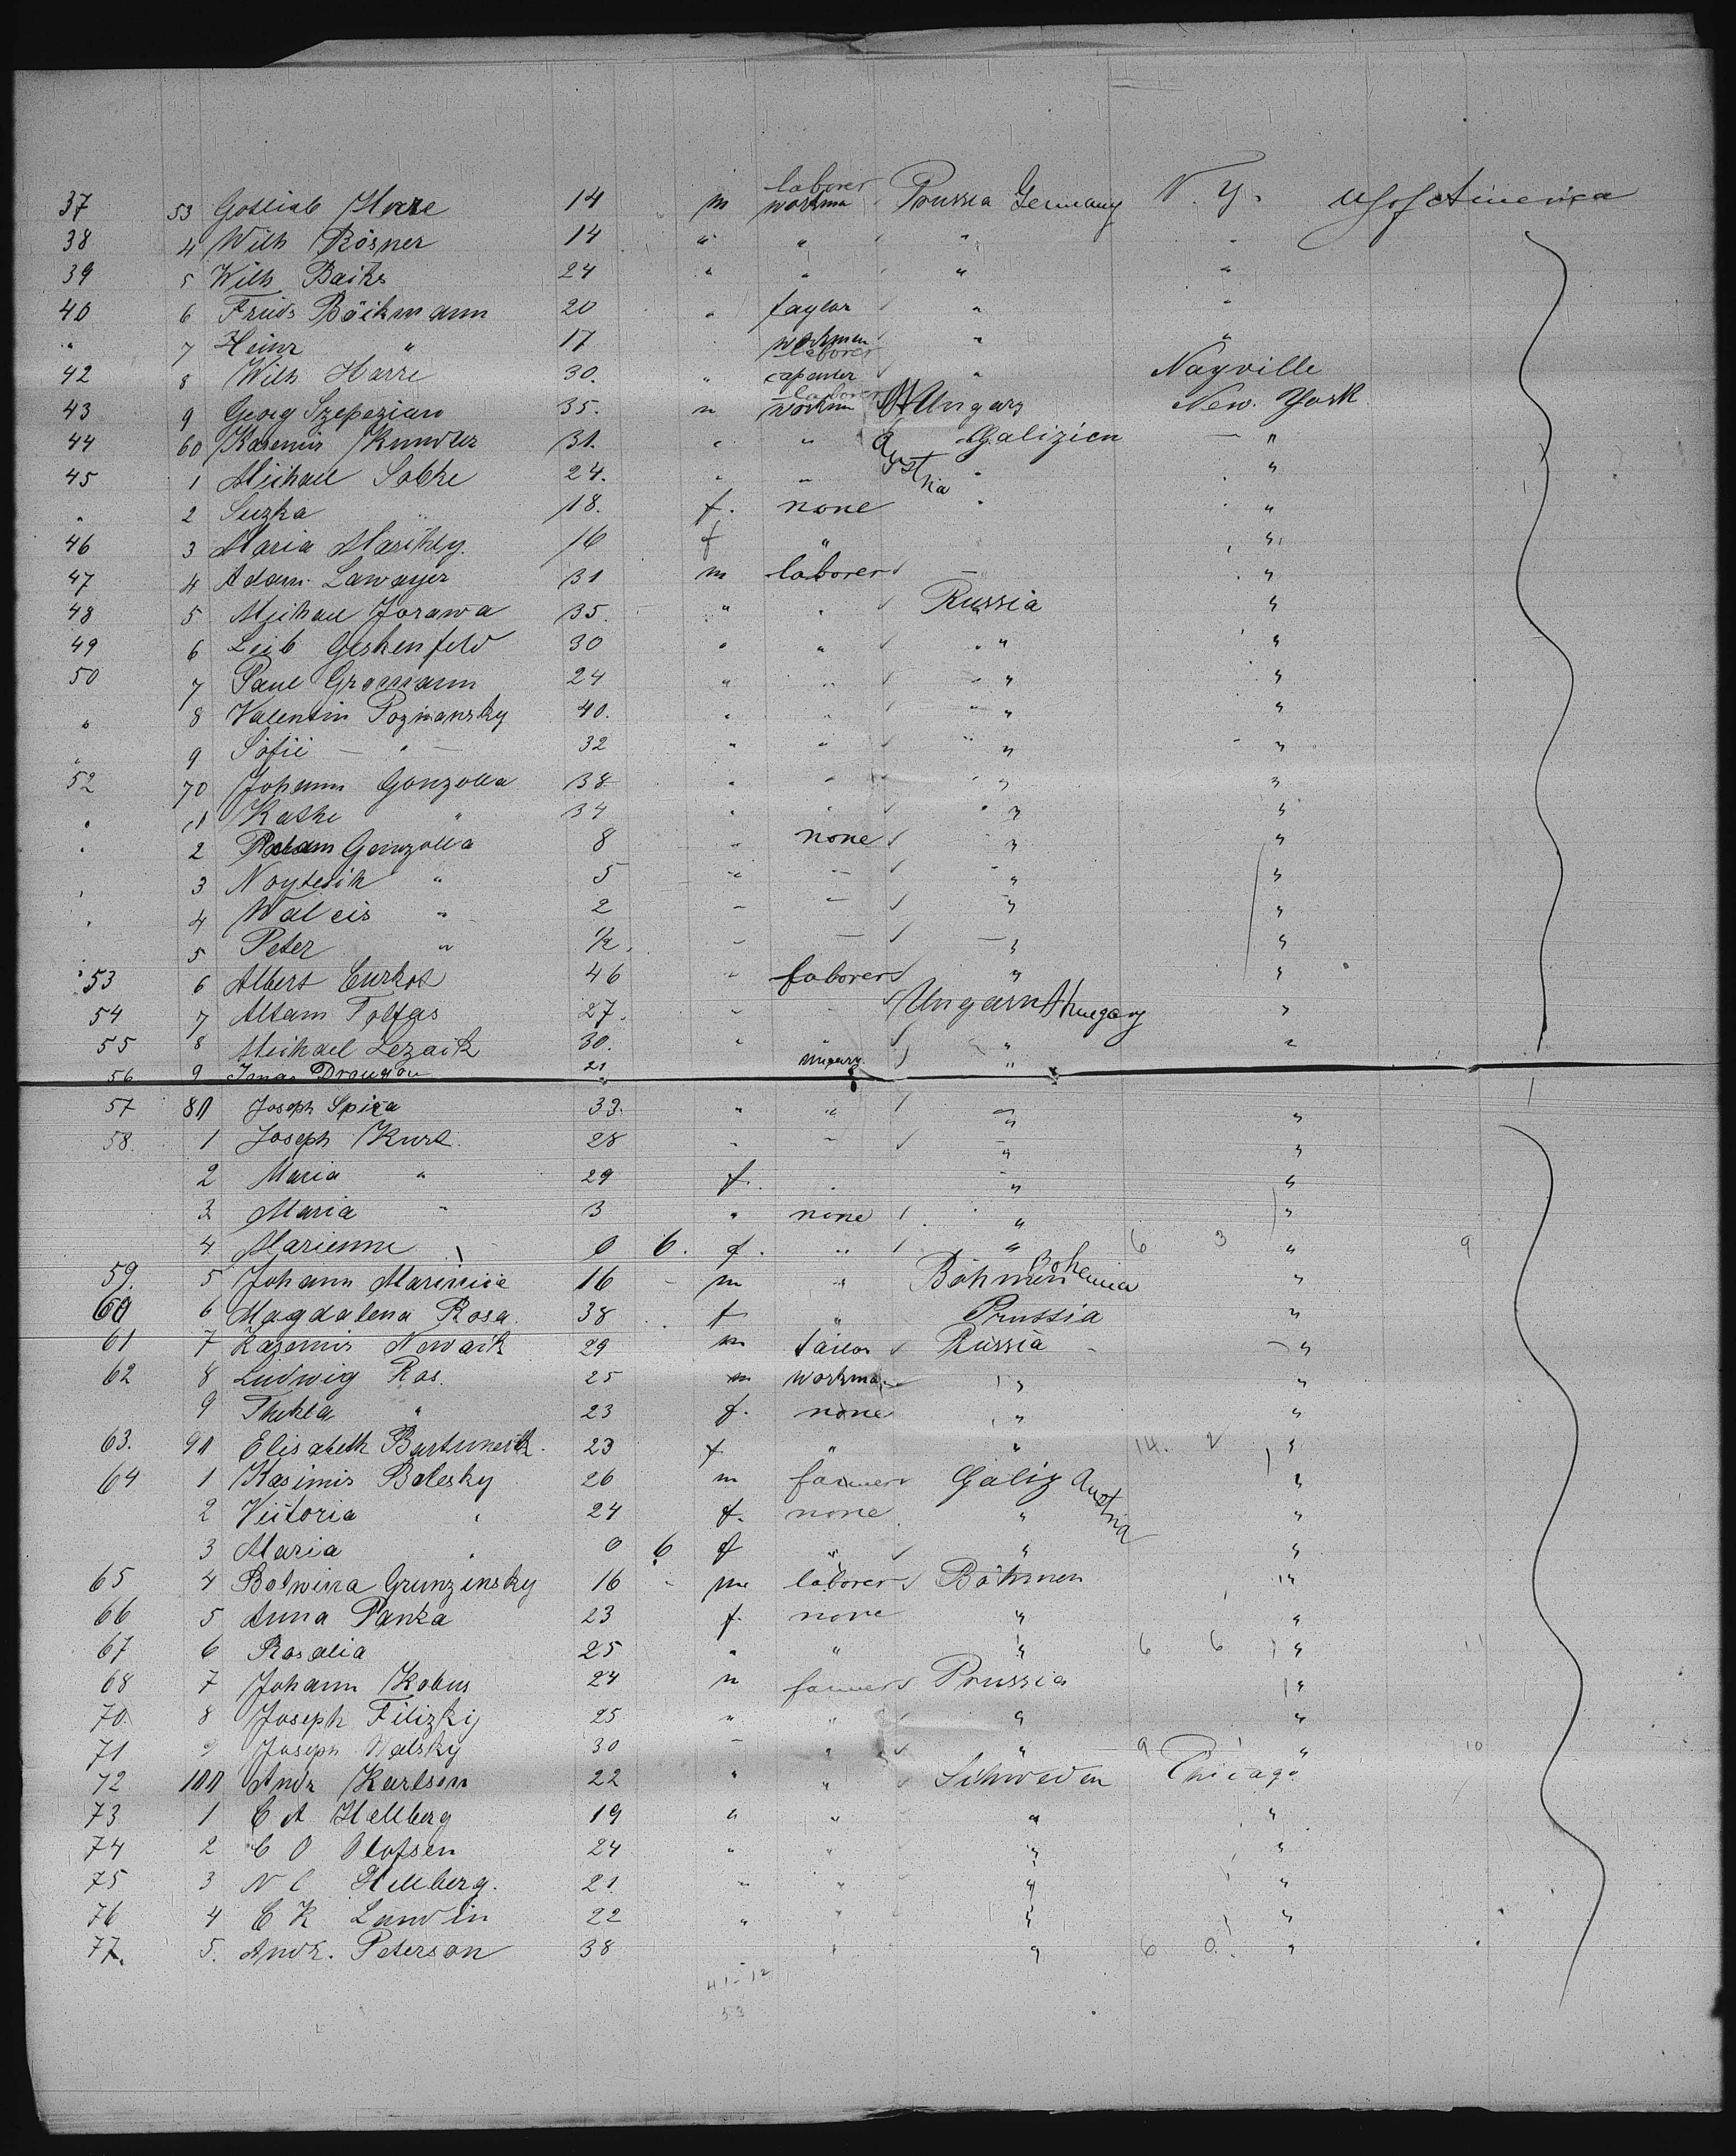 37 53 Gottlieb Harre 14 m laborer workma Prussia Germany N. Y. U S of America
38 4 Wilh Rösner 14 " " " "
39 5 Wilh Baiks 24 " " " "
40 6 Frieds Böikmann 20 " taylor " "
" 7 Heinr " 17 workman laborer " "
42 8 Wilh Harre 30. " capenter " Nayville
43 9 Georg 35. " laborer workma Ungarn New. York
44 60 31. " " Austria Galizien "
45 1 Michael Sobke 24. " " " "
" 2 Suzka " 18. f. none " "
46 3 Maria 16 f " "
47 4 Adam Lawayer 31 m laborer "
48 5 Michael Jorawa 35. " " Russia "
49 6 Leib Geskenfeld 30 " " " "
50 7 Paul Gromann 24 " " " "
" 8 Valentin Poznansky 40. " " " "
" 9 Sofii " 32 " " " "
52 70 Johann Gonzolla 38 " " " "
" 1 Kathe " 34 " " " "
" 2 Gonzolla 8 " none " "
" 3 Noytesik " 5 " " " "
" 4 Walcis " 2 " " " "
5 Peter " 1/2. " " " "
53 6 Albert Curkot 46 " laborer " "
54 7 Altam Toltas 27. " " Ungarn Hungary "
55 8 Michael Lezaik 30. " " " "
56 9 21 "
57 80 Joseph Spira 33. " " " "
58. 1 Joseph Kurt 28 " " " "
2 Maria " 29 f. " " "
3 Maria " 3 " none " "
4 Marienne " 0 6. f. " " 6 3 " 9
59. 5 Johann 16 m " Böhmen Bohemia "
60 6 Magdalena Rosa 38 f " Prussia "
61 7 Kazemir Nowaik 29 m tailor Russia "
62 8 Ludwig Ros. 25 m workma " "
9 Thekla " 23 f. none " "
63. 90 Elisabeth 23 f " " 14. 2 "
64 1 Kasimir Bolesky 26 m farmer Galiz Austria "
2 Victoria " 24 f. none " "
3 Maria " 0 6 f " " "
65 4 Bolwina Grunzinsky 16 m laborer Böhmen "
66 5 Anna Panka 23 f. none " "
67 6 Rosalia 25 " " " 6 6 " 11
68 7 Johann Kobus 24 m farmer Prussia "
70. 8 Joseph Filizkij 25 " " " "
71 9 Joseph Walsky 30 " " " 9 1 " 10
72 100 Andr Karlson 22 " " Schweden Chicago
73 1 C A Hallberg 19 " " " "
74 2 C O Olofsen 24 " " " "
75 3 N C Hallberg. 21. " " " "
76 4 C K Landin 22 " " " "
77. 5. Andr. Peterson 38 " " 6 0. "
41-12
53